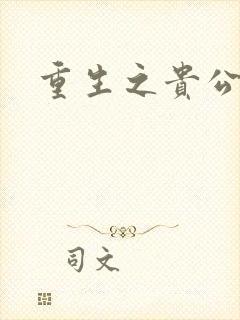 重生之貴公
司文